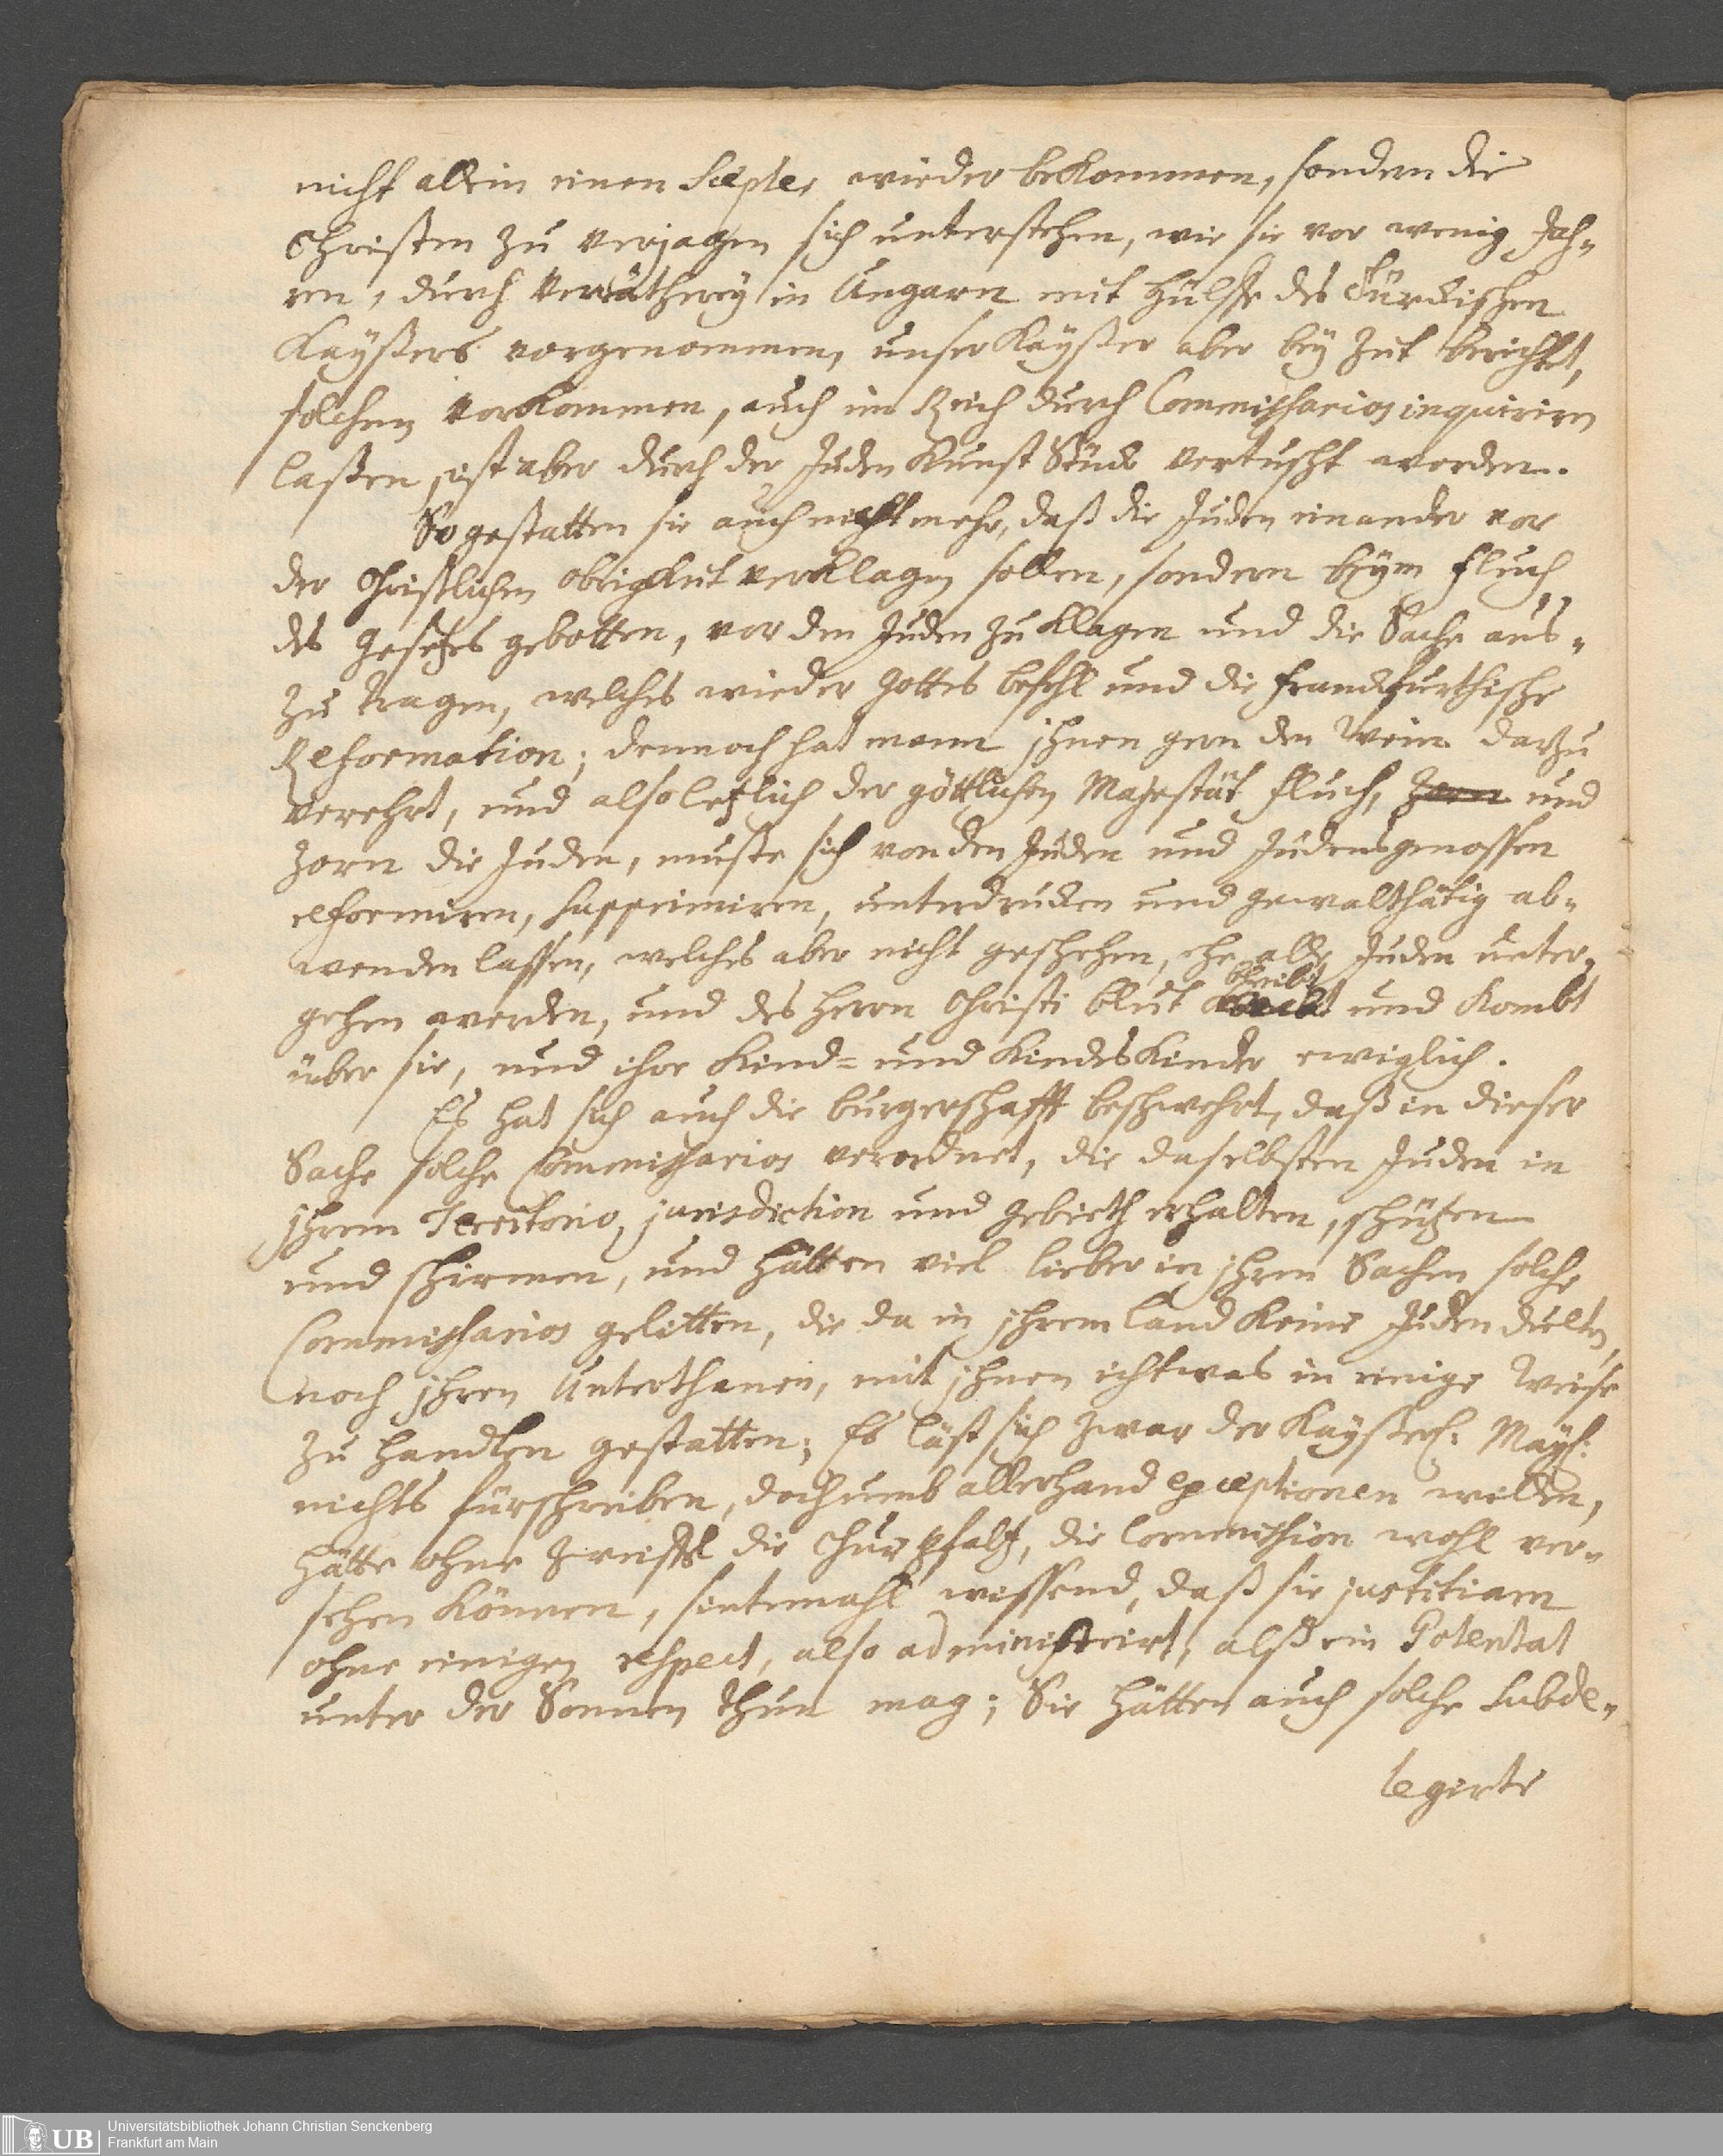 nicht allein einen Scepter wieder bekommen, sondern die
Christen zu verjagen sich unterstehen, wie sie vor wenig Jah-
ren, durch Verrätherey in Ungarn mit hülffe des Türckischen
Kayßers vorgenommen, unser Kayßer aber bey Zeit berichtet,
solchem vorkommen, auch im Reich durch Commissarios inquiriren
laßen, ist aber durch der Juden Kunst Stück vertuscht worden.
So gestatten sie auch nicht mehr, daß die Juden einander vor
der Christlichen obrigkeit verklagen sollen, sondern beym fluch
des gesetzes gebotten, vor den Juden zu klagen und die Sache aus-
zu tragen, welches wieder Gottes befehl und die Franckfurthische
Reformation; dennoch hat mann jhnen gern den Wein darzu
verehrt, und also letzlich der göttlichen Majestät fluch, Zorn und
Zorn die Juden, muste sich von den Juden und Judensgenossen
reformiren, supprimiren, unterdrucken und gewalthätig ab-
wenden lassen, welches aber nicht geschehen, ehe alle Juden unter-
gehen werden, und des Herrn Christi blut bleibt und kombt
über sie, und ihre Kind- und Kindeskinder ewiglich.
Es hat sich auch die burgerschafft beschwehrt, daß in dieser
Sache solche Commissarios verordnet, die daselbsten Juden in
jhrem Territorio, jurisdiction und gebieth erhalten, schützen
und schirmen, und hätten viel lieber in jhren Sachen solche
Commissarios gelitten, die da in jhrem land keine Juden dulten,
noch jhren Unterthanen, mit jhnen ichtwas in einige Weise
zu handlen gestatten; Es läst sich zwar der Kayßerl: Mayst:
nichts fürschreiben, doch umb allerhand exceptionen willen,
hätte ohne Zweiffel die Chur Pfaltz, die Commission wohl ver-
sehen können, sintemahl wissend, daß sie justitiam
ohne einigen respect, also administrirt, alß ein Potentat
unter der Sonnen thun mag; Sie hätten auch solche Subde-
legirte
Universitätsbibliothek Johann Christian Senckenberg
UB Frankfurt am Main